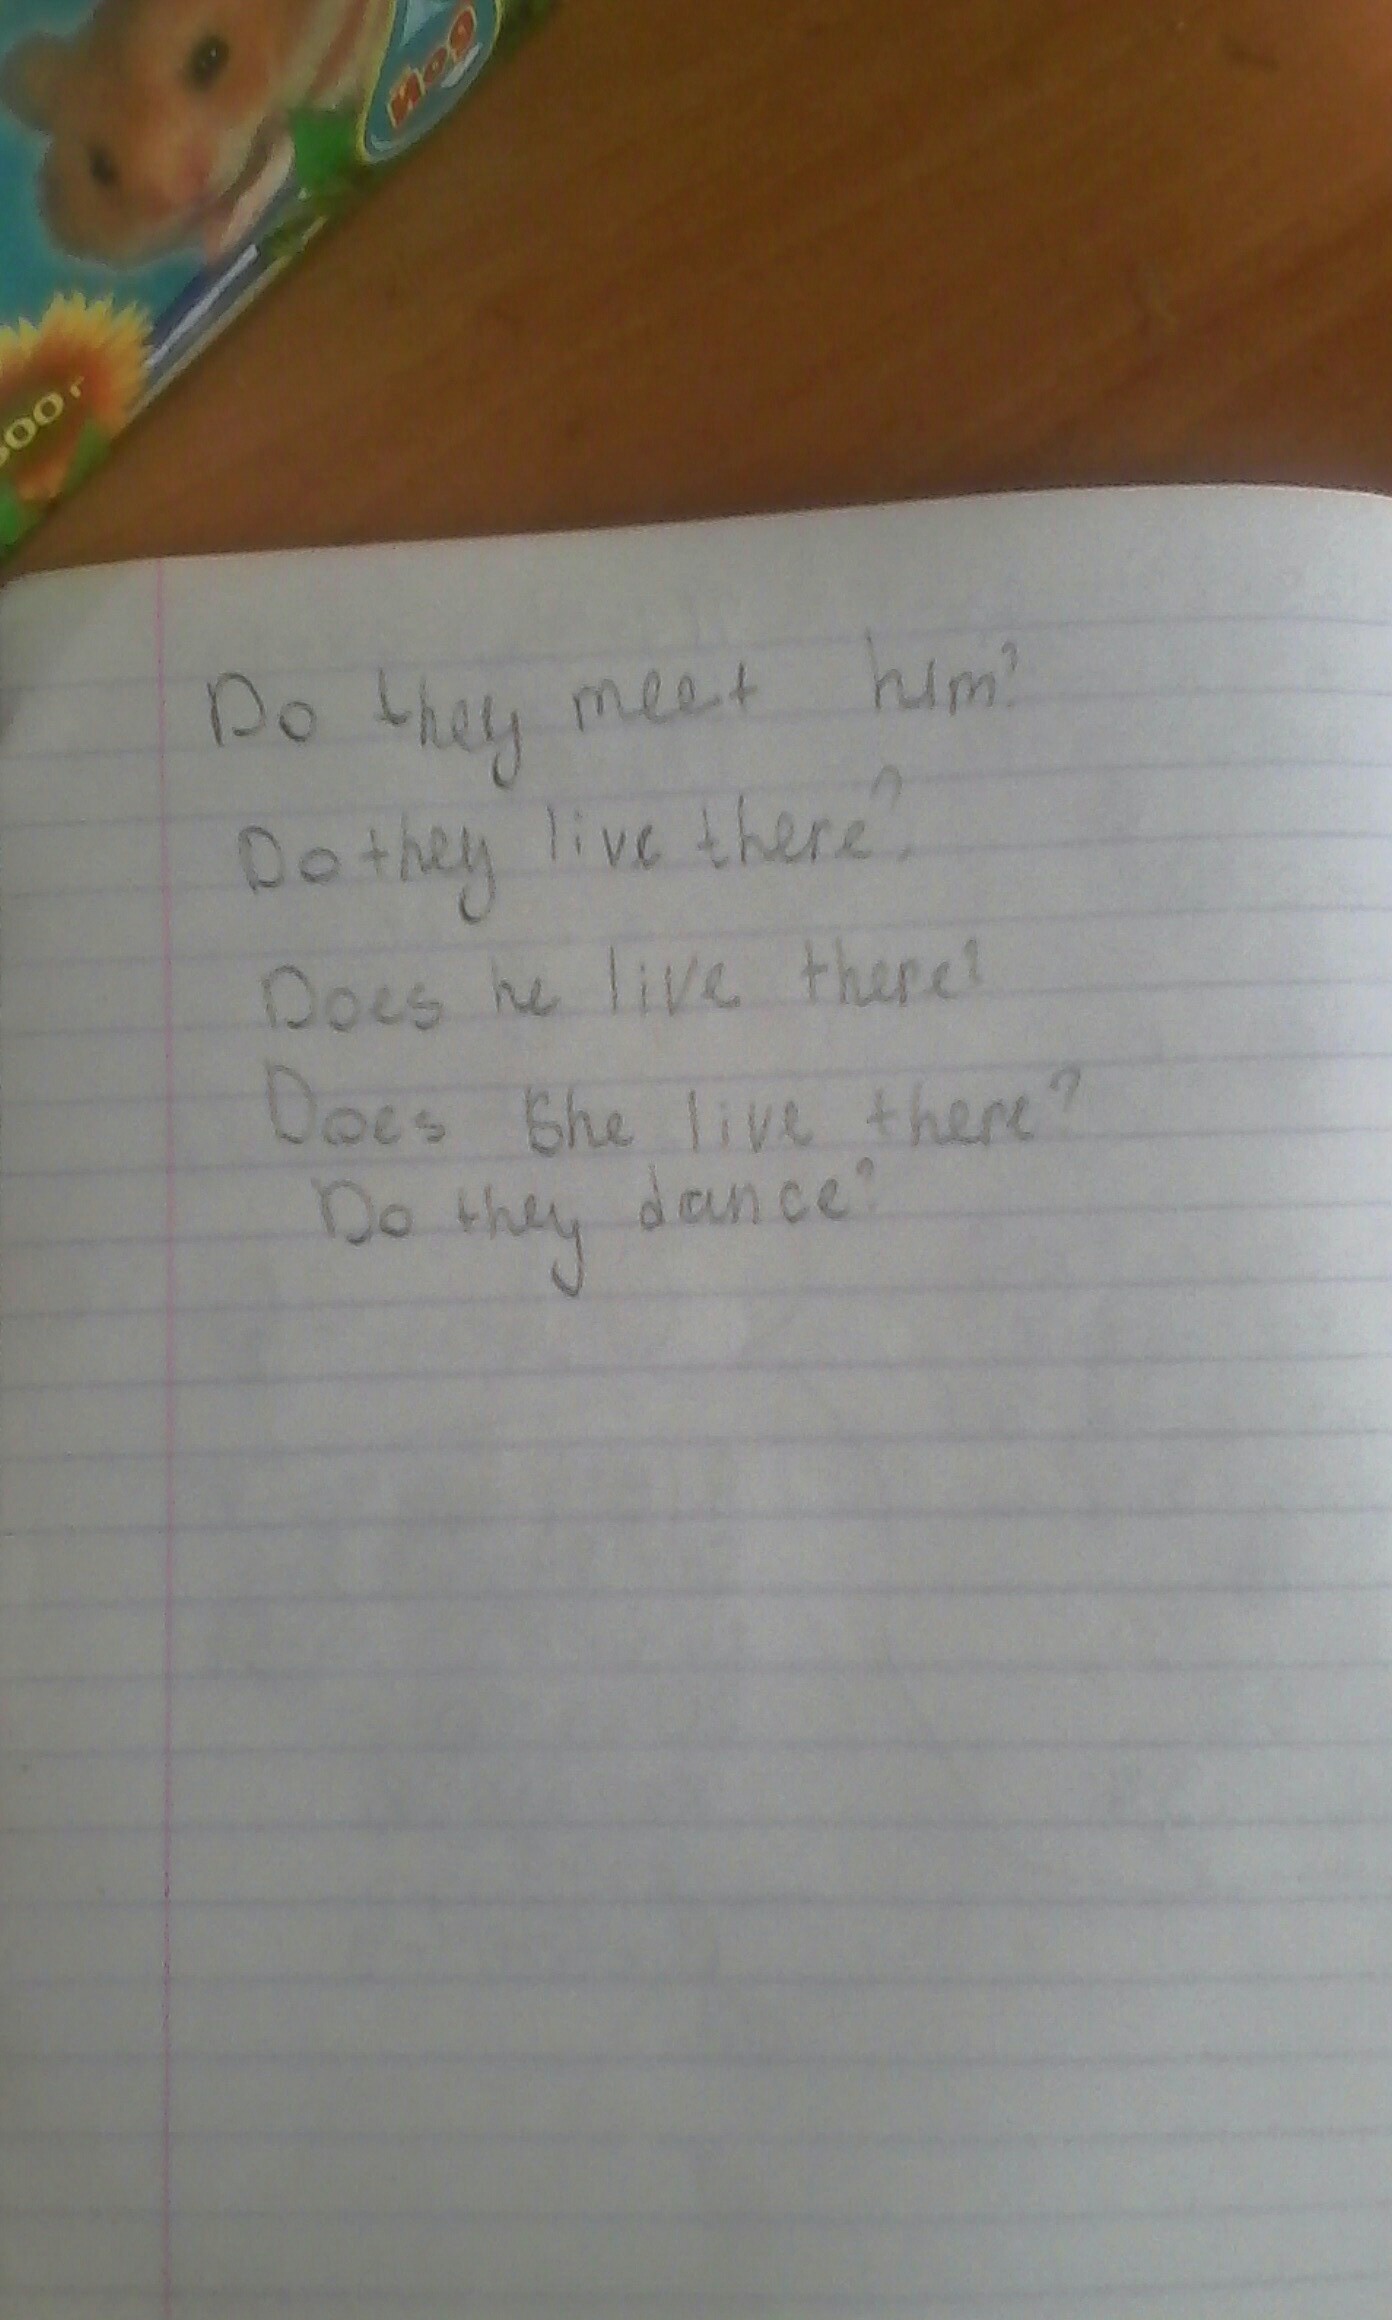 Йод
500 г
Do they meet him?
Do they live there?
Does he live there?
Does she live there?
Do they dance?